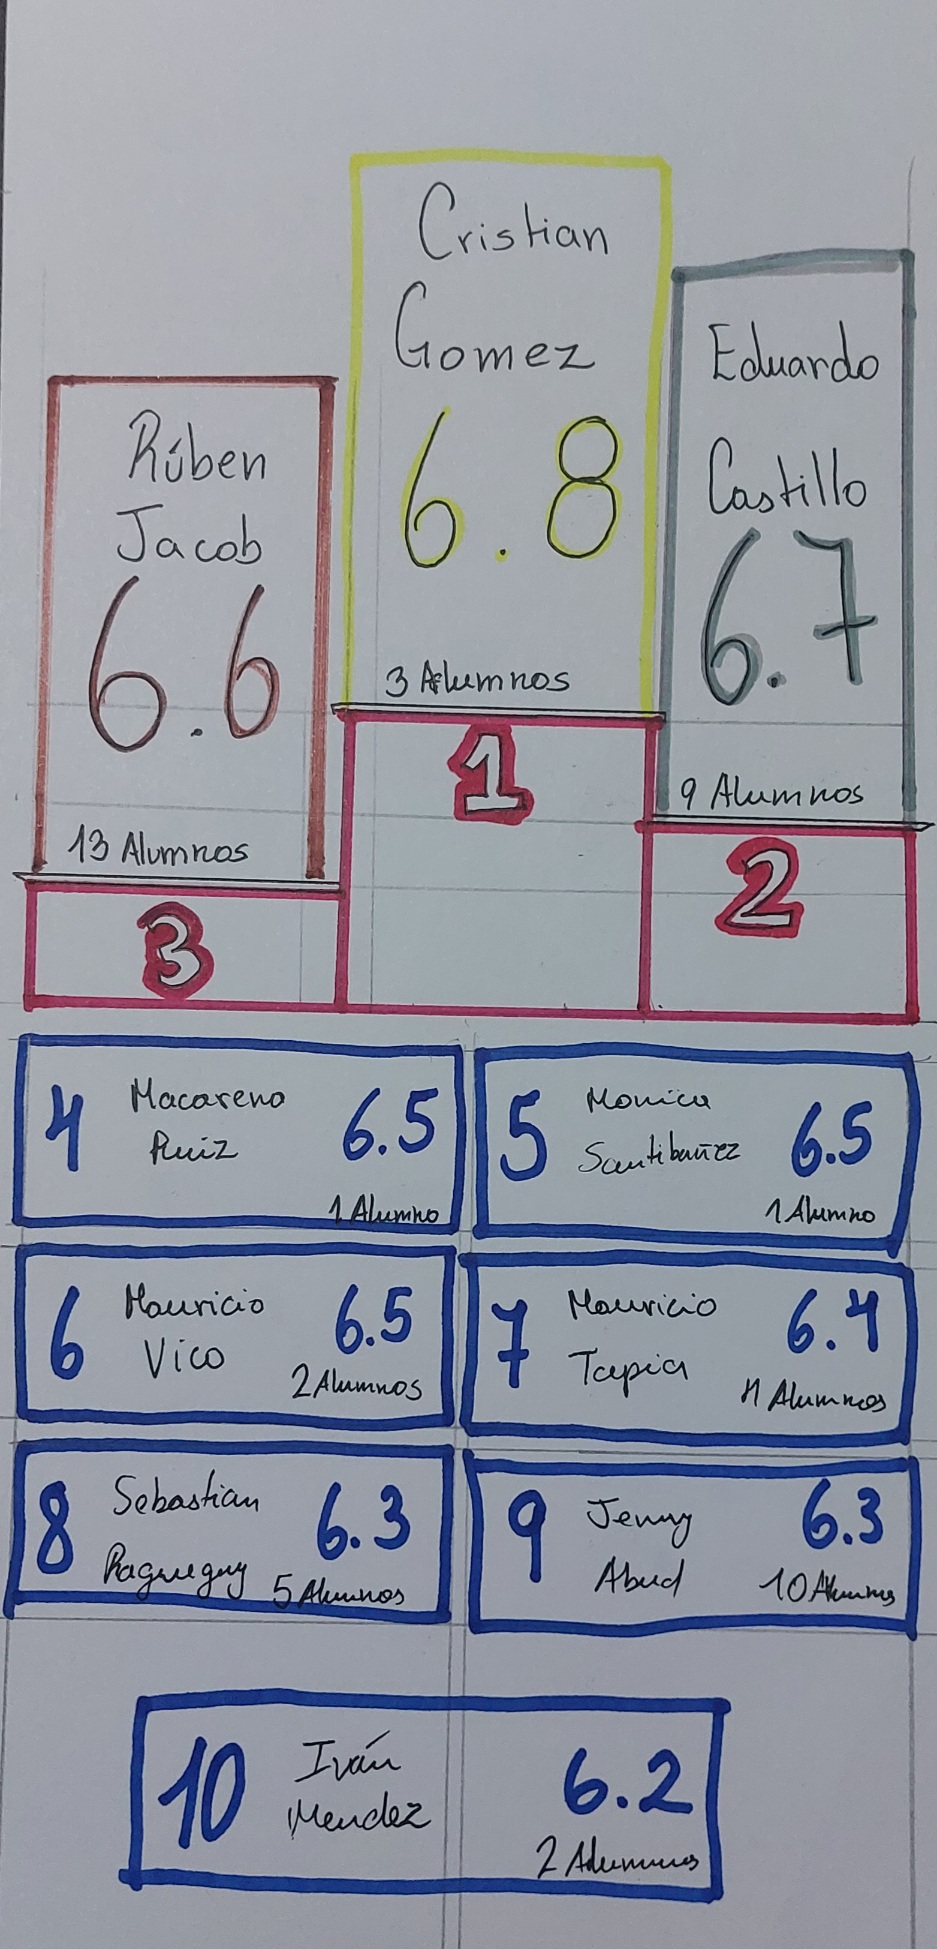 Cristian
Gomez
6.8
3 Alumnos
1
Eduardo
Castillo
6.7
9 Alumnos
2
Rúben
Jacob
6.6
13 Alumnos
3
4 Macarena
Ruiz
6.5
1 Alumno
5 Monica
Santibañez
6.5
1 Alumno
6 Mauricio
Vico
6.5
2 Alumnos
7 Mauricio
Tapia
6.4
Alumnos
8 Sebastian
6.3
5 Alumnos
9 Jenny
Abud
6.3
10 Alumnos
10 Iván
Mendez
6.2
2 Alumnos